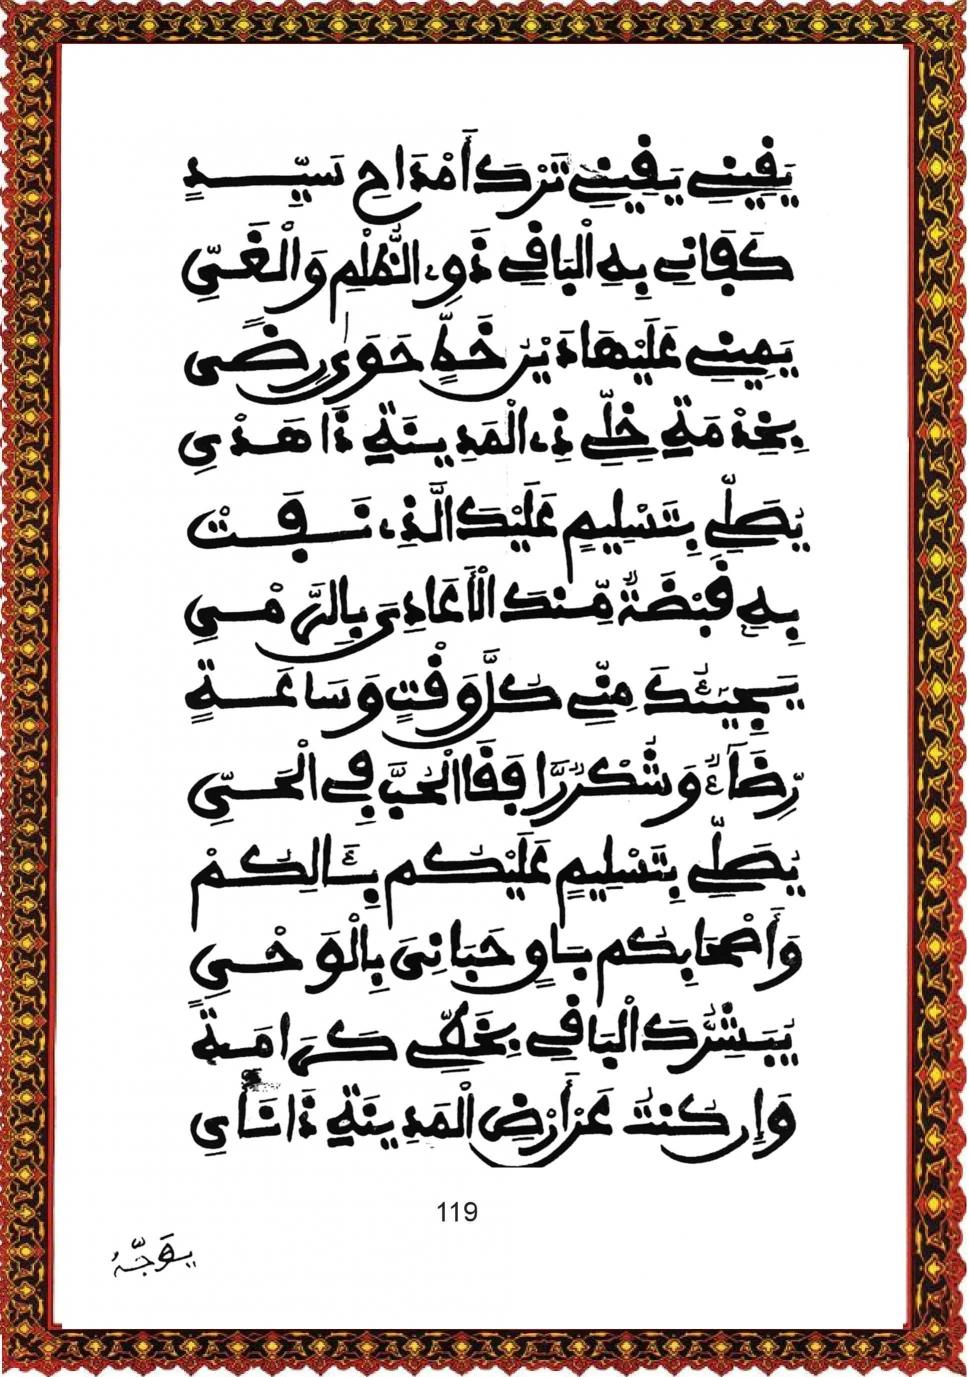 يَقِينِي يَقِينِي تَرْكَ أَمْدَاحِ سَيِّدٍ
كَفَانِي بِهِ الْبَاقِي ذَوِي الظُّلْمِ وَالْغَيِّ
يَمِينِي عَلَيْهَا دَيْنُ خَطٍّ حَوَى رِضًى
بِخِدْمَةِ خِلِّي ذِي الْمَدِينَةِ ذَا هَدْيِ
يُصَلِّي بِتَسْلِيمٍ عَلَيْكَ الَّذِي نَفَتْ
بِهِ قَبْضَةٌ مِّنْكَ الْأَعَادِيَ بِالرَّمْيِ
يَجِيئُكَ مِنِّي كُلَّ وَقْتٍ وَسَاعَةٍ
رِّضَاءٌ وَشُكْرٌ يَا قَفَا الْحُبَّ فِي الْحَيِّ
يُصَلِّي بِتَسْلِيمٍ عَلَيْكُم بِئَالِكُمْ
وَأَصْحَابِكُم بَاقٍ حَبَانِيَ بِالْوَحْيِ
يُبَشِّرُكَ الْبَاقِي بِخَطِّي كَرَامَةً
وَإِن كُنْتُ عَنْ أَرْضِ الْمَدِينَةِ ذَا نَأْيِ
119
يُوَجِّهُ